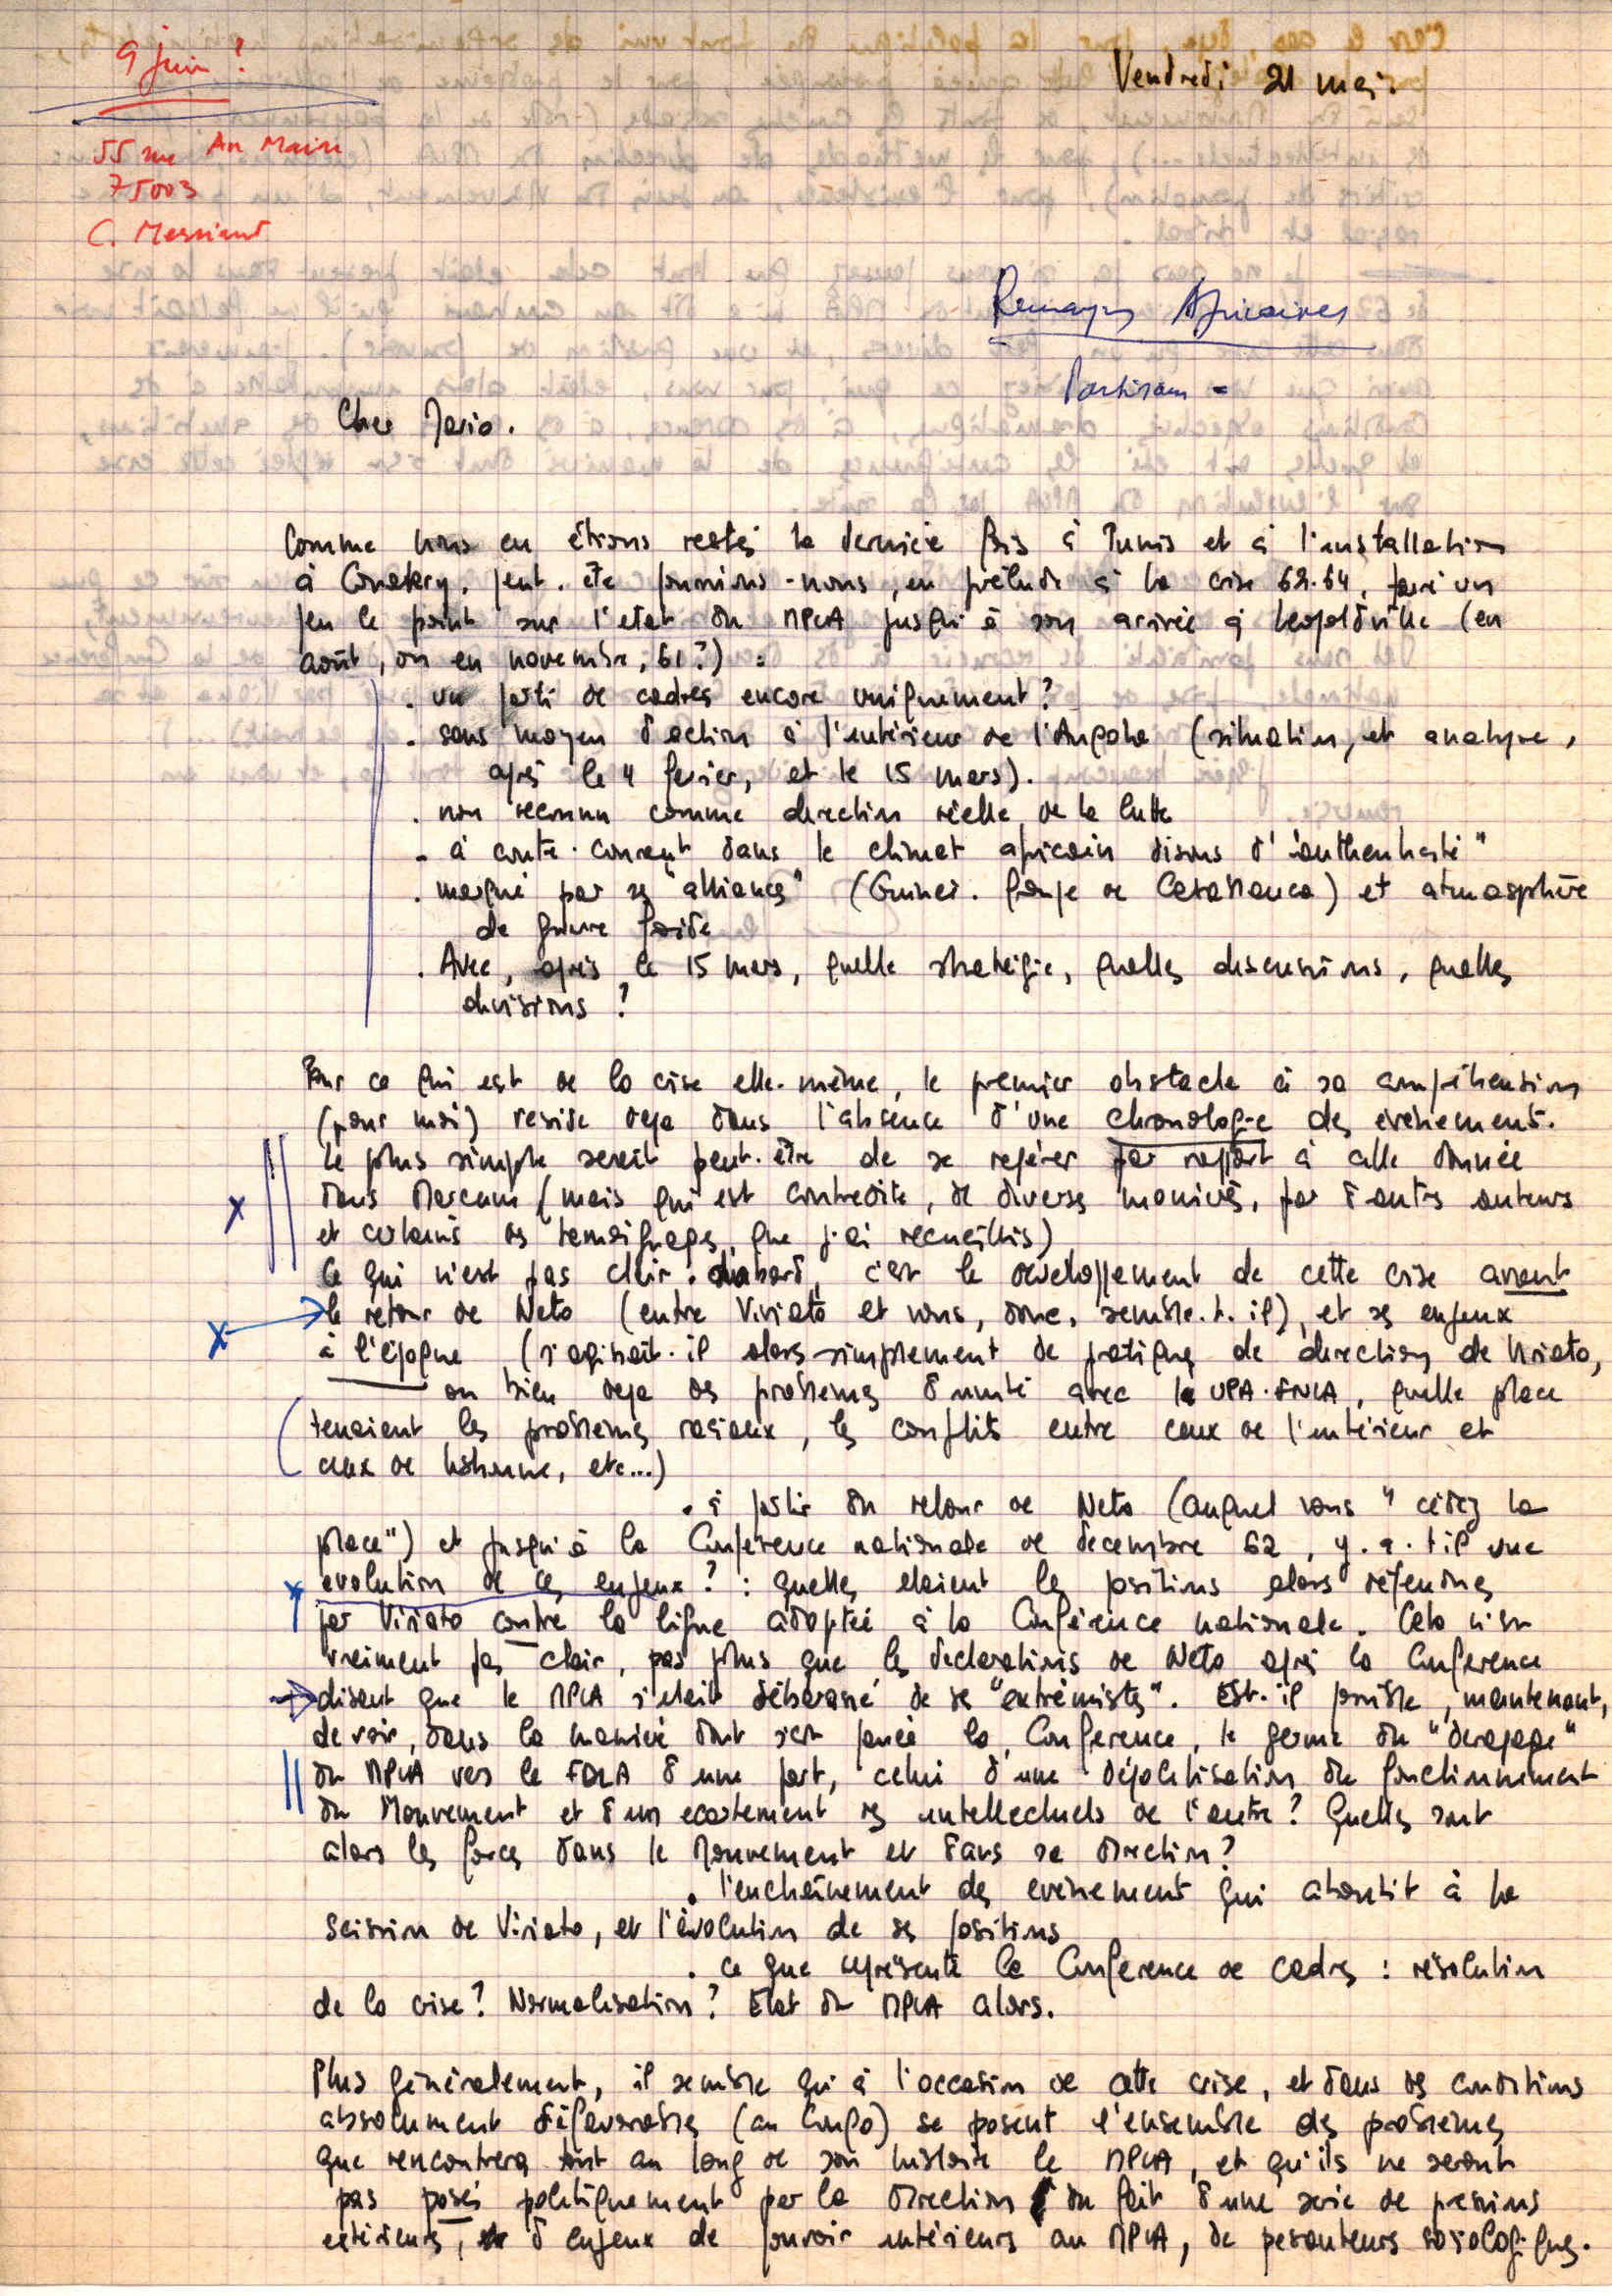 9 juin ?
55 rue Au Maire
75003
C. Messiant
Vendredi 21 mai.
Remarques Africaines
Partisans -
Cher Mario.
Comme nous en étions restés la dernière fois à Tunis et à l'installation
à Conakry, peut-être pourrions-nous, en prélude à la crise 62-64, faire un
peu le point sur l'état du MPLA jusqu'à son arrivée à Léopoldville (en
août, ou en novembre, 61 ?) :
. un parti de cadres encore uniquement ?
. sans moyen d'action à l'intérieur de l'Angola (situation, et analyse,
après le 4 février, et le 15 mars).
. non reconnu comme direction réelle de la lutte
- à contre-courant dans le climat africain disons d'"authenticité"
. marqué par ses "alliances" (Guinée. Groupe de Casablanca) et atmosphère
de guerre froide
. Avec, après le 15 mars, quelle stratégie, quelles discussions, quelles
divisions ?
Pour ce qui est de la crise elle-même, le premier obstacle à sa compréhension
(pour moi) réside déjà dans l'absence d'une chronologie des évènements.
Le plus simple serait peut-être de se repérer par rapport à celle donnée
dans Marcum (mais qui est contredite, de diverses manières, par d'autres auteurs
et certains des témoignages que j'ai recueillis)
Ce qui n'est pas clair. d'abord, c'est le développement de cette crise avant
le retour de Neto (entre Viriato et vous, donc, semble-t-il), et ses enjeux
à l'époque (s'agissait-il alors simplement de pratiques de direction de Viriato,
ou bien déjà des problèmes d'unité avec la UPA-FNLA, quelle place
tenaient les problèmes raciaux, les conflits entre ceux de l'intérieur et
ceux de Lisbonne, etc...)
. à partir du retour de Neto (auquel vous "cédez la
place") et jusqu'à la Conférence nationale de décembre 62, y-a-t-il une
évolution de ces enjeux ? : quelles étaient les positions alors défendues
par Viriato contre la ligne adoptée à la Conférence nationale. Cela n'est
vraiment pas clair, pas plus que les déclarations de Neto après la Conférence
disant que le MPLA s'était débarrassé de ses "extrémistes". Est-il possible, maintenant,
de voir, dans la manière dont s'est passée la Conférence, le germe du "dérapage"
du MPLA vers le FDLA d'une part, celui d'une dépolitisation du fonctionnement
du Mouvement et d'un écartement des intellectuels de l'autre ? Quelles sont
alors les forces dans le Mouvement et dans sa direction ?
. l'enchaînement des évènement qui aboutit à la
scission de Viriato, et l'évolution de ses positions
. ce que représente la Conférence de cadres : résolution
de la crise ? Normalisation ? Etat du MPLA alors.
Plus généralement, il semble qu'à l'occasion de cette crise, et dans des conditions
absolument défavorables (au Congo) se posent l'ensemble des problèmes
que rencontrera tout au long de son histoire le MPLA, et qu'ils ne seront
pas posés politiquement par la Direction du fait d'une série de pressions
extérieures, d'enjeux de pouvoir intérieurs au MPLA, de pesanteurs sociologiques.